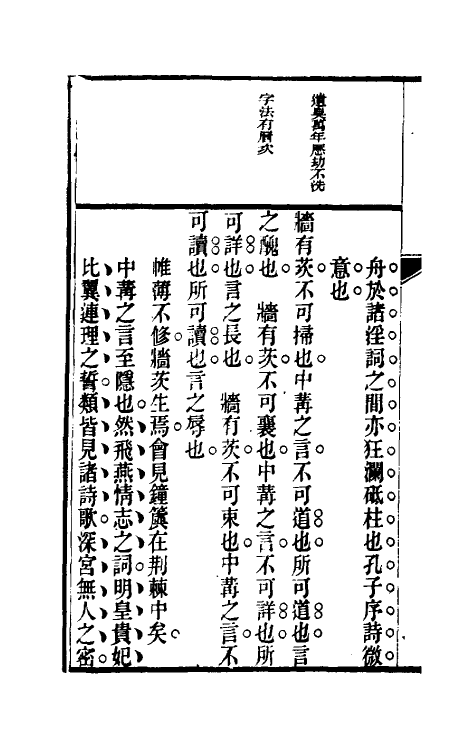 遺臭萬年歷劫不洗
字法有層次
舟於諸淫詞之間亦狂瀾砥柱也孔子序詩微
意也
牆有茨不可掃也中冓之言不可道也所可道也言
之醜也　牆有茨不可襄也中冓之言不可詳也所
可詳也言之長也　牆有茨不可束也中冓之言不
可讀也所可讀也言之辱也
帷薄不修牆茨生焉會見鐘簴在荆棘中矣
中冓之言至隱也然飛燕情志之詞明皇貴妃
比翼連理之誓類皆見諸詩歌深宮無人之密